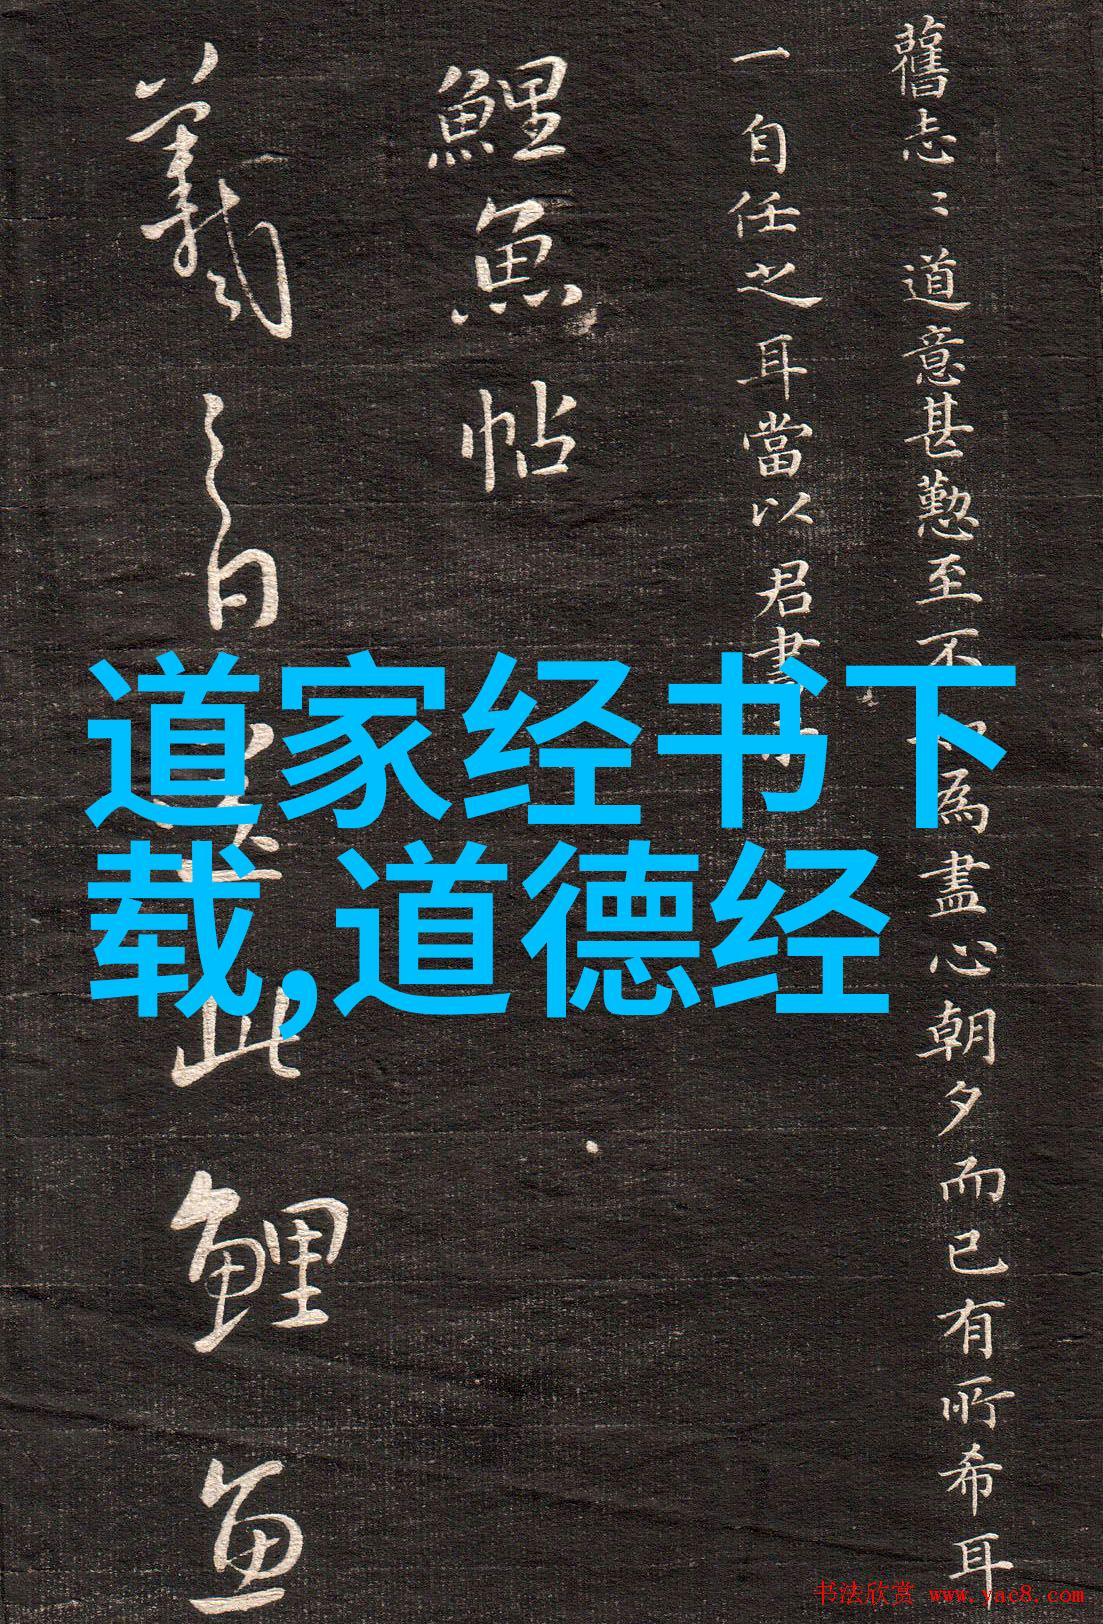 舊志〻道意甚懃至不
為盡心朝夕而已有所希耳
一自任之耳當以君書
鯉魚帖
羲之白
此鯉魚
道家经书下
载,道德经
书法欣赏 www.yac8.com